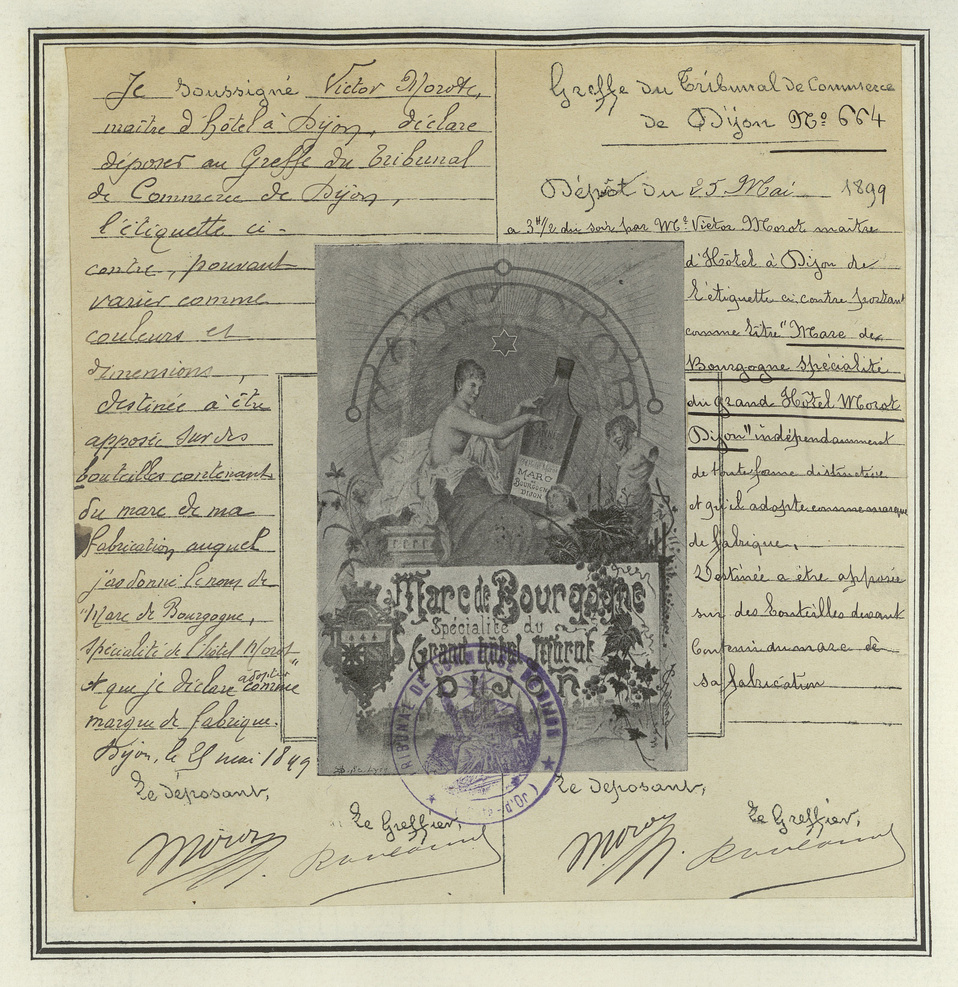 Je soussigné Victor Morot,
maître d'hôtel à Dijon, déclare
déposer au Greffe du Tribunal
de Commerce de Dijon,
l'étiquette ci-
contre, pouvant
varier comme
couleurs et
dimensions,
destinée à être
apposée sur des
bouteilles contenant
du marc de ma
fabrication auquel
j'ai donné le nom de
"Marc de Bourgogne,
spécialité de l'hôtel Morot"
et que je déclare adopter comme
marque de fabrique.
Dijon, le 25 mai 1899
Le déposant,
Le Greffier,
Morot
Greffe du Tribunal de Commerce
de Dijon Nº 664
Dépôt du 25 Mai 1899
a 3 H 1/2 du soir par Mr Victor Morot maître
d'Hôtel à Dijon de
l'étiquette ci contre portant
comme titre "Marc de
Bourgogne spécialité
du grand Hôtel Morot
Dijon" indépendamment
de toute forme distinctive
et qu'il adopte comme marque
de fabrique.
Destinée a être apposée
sur des bouteilles devant
Contenir du marc de
sa fabrication
Le déposant,
Le Greffier,
Morot
MARC
DE
BOURGOGNE
DIJON
Marc de Bourgogne
Spécialité du
Grand hôtel Morot
DIJON
TRIBUNAL DE COMMERCE DE DIJON